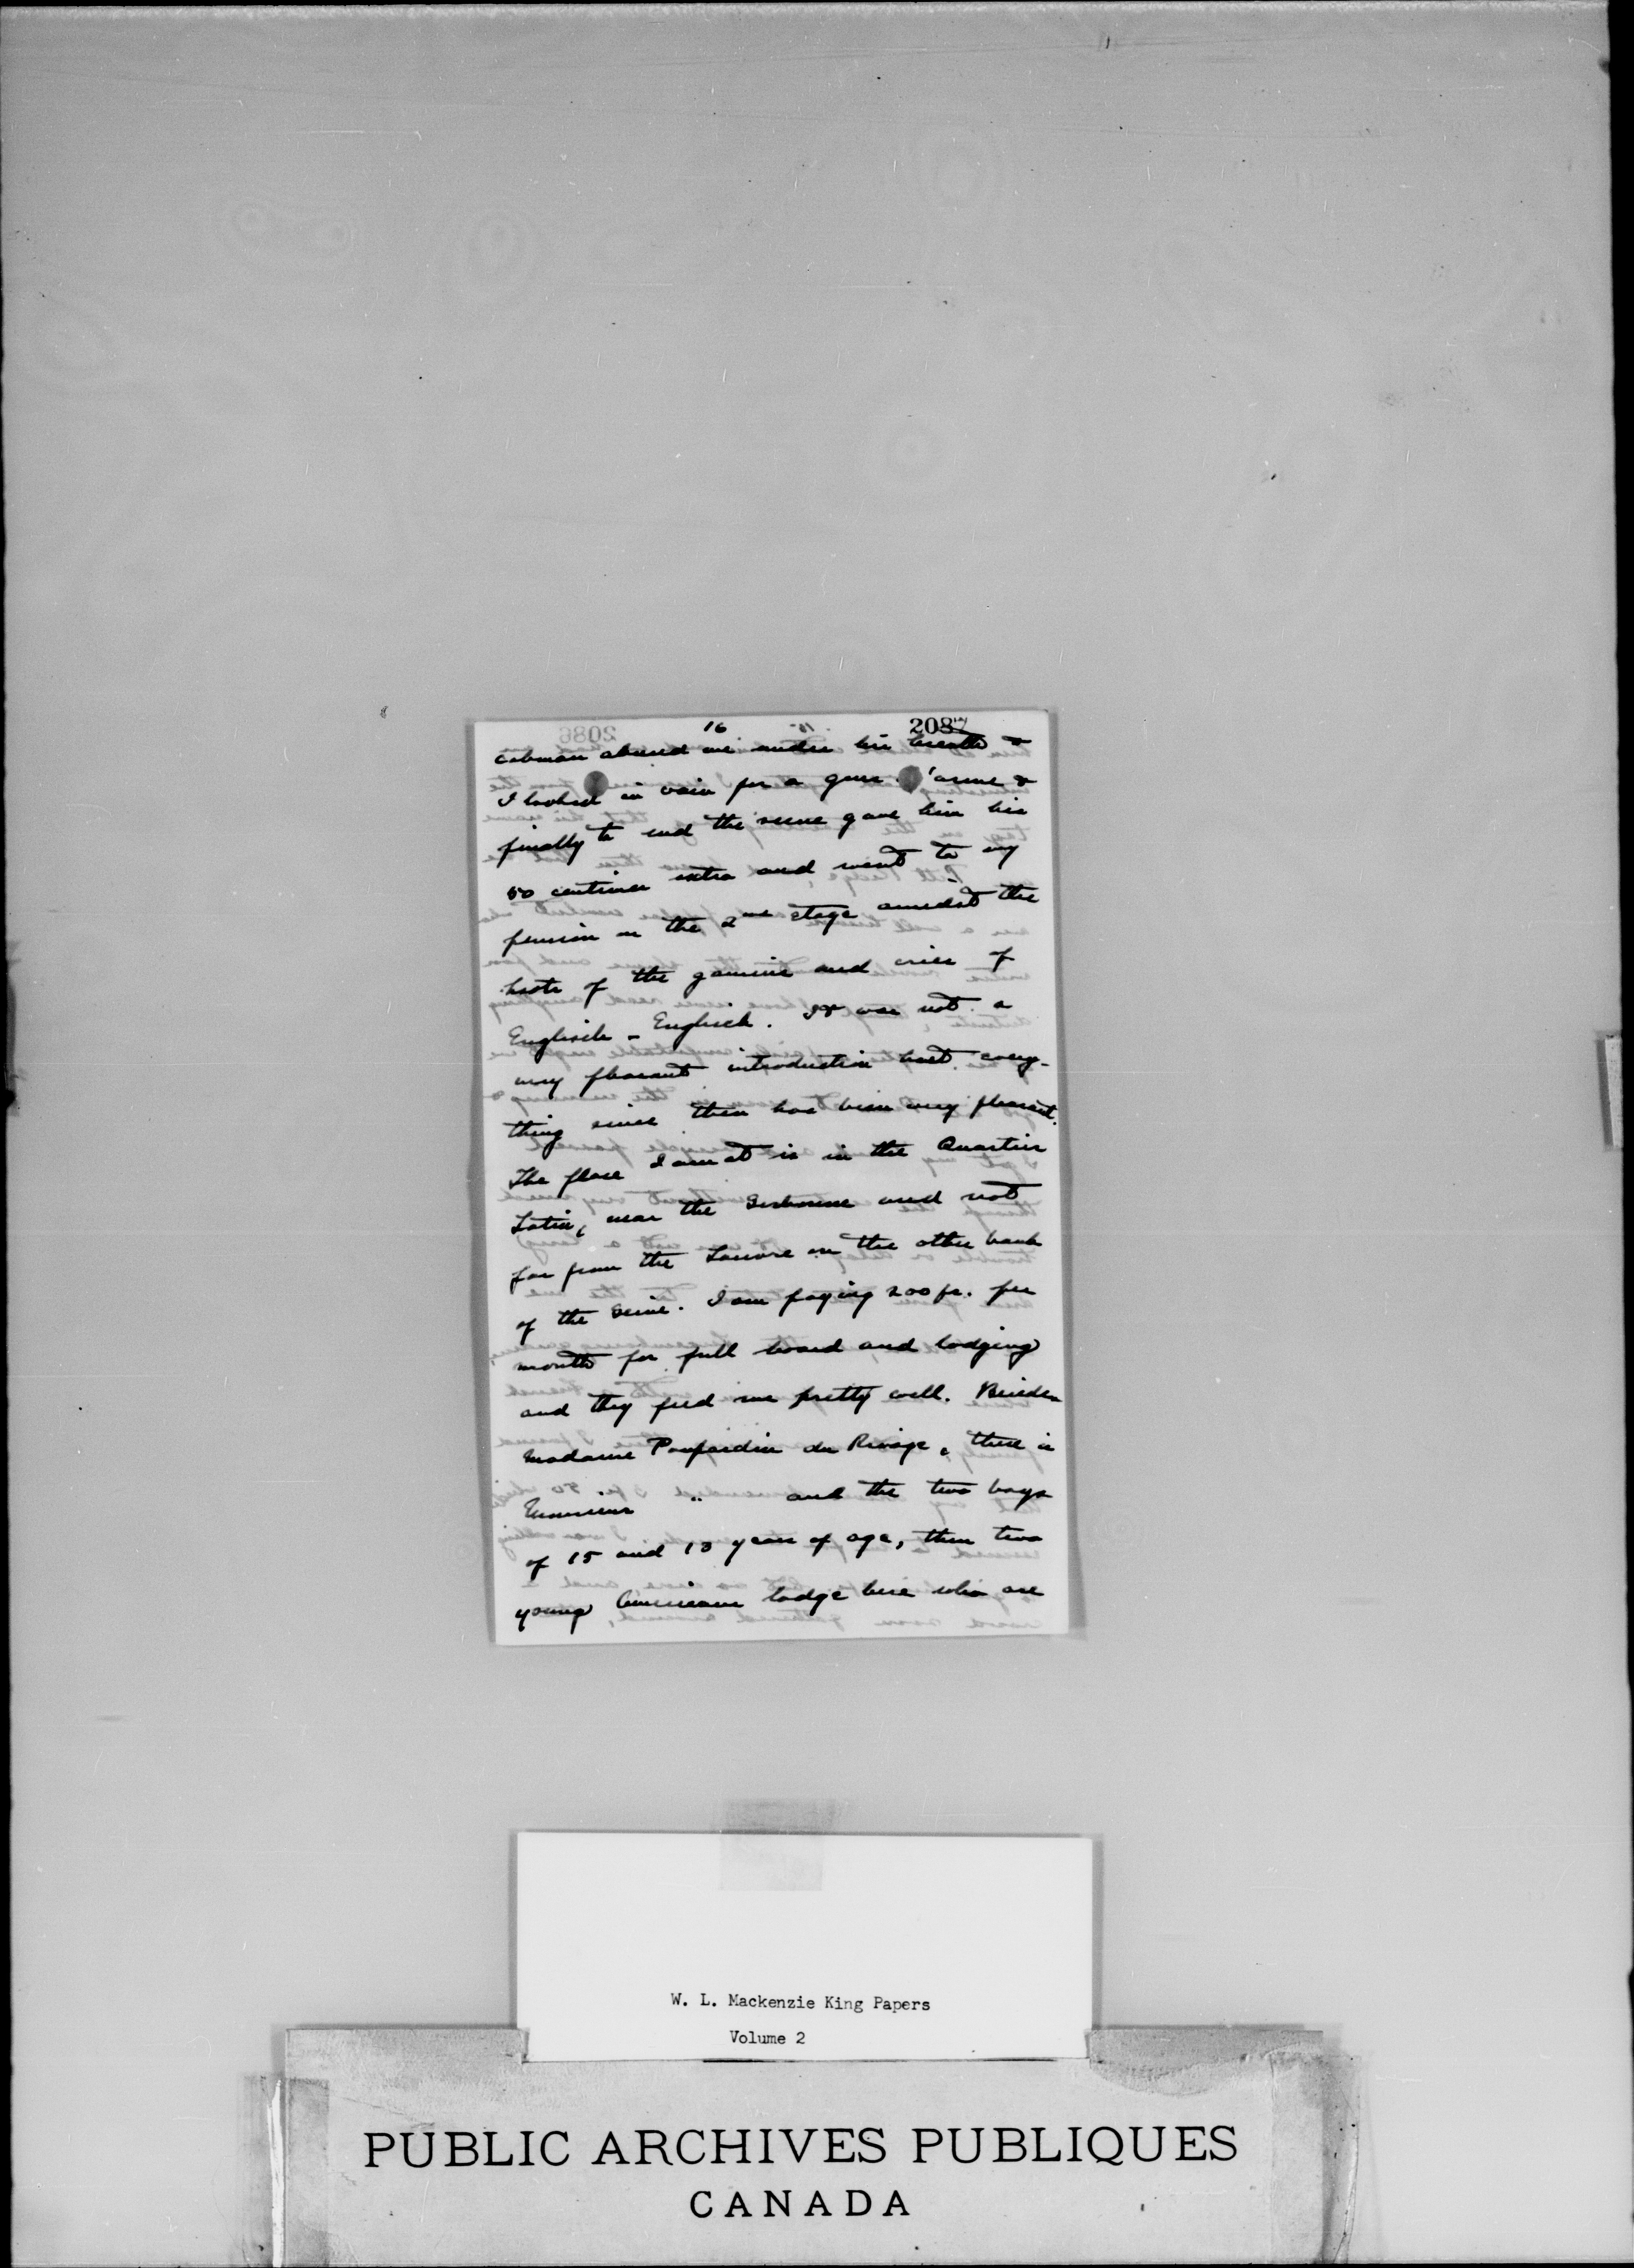 16
2087
cabman abused me under his breath &
I looked in vain for a gens d'arme &
finally to end the scene gave him his
50 centimes extra and went to my
pension on the 2me etage amidst the
hoots of the gamins and cries of
Englisch - Englisch. It was not a
very pleasant introduction but every-
thing since then has been very pleasant.
The place I am at is in the Quartier
Latin, near the Sorbonne and not
far from the Louvre on the other bank
of the Seine. I am paying 200 fr. per
month for full board and lodging
and they feed me pretty well. Besides
Madame Poupardin du Rivage, there is
Monsieur " and the two boys
of 15 and 13 years of age, then two
young Americans lodge here who are
W. L. Mackenzie King Papers
Volume 2
PUBLIC ARCHIVES PUBLIQUES
CANADA